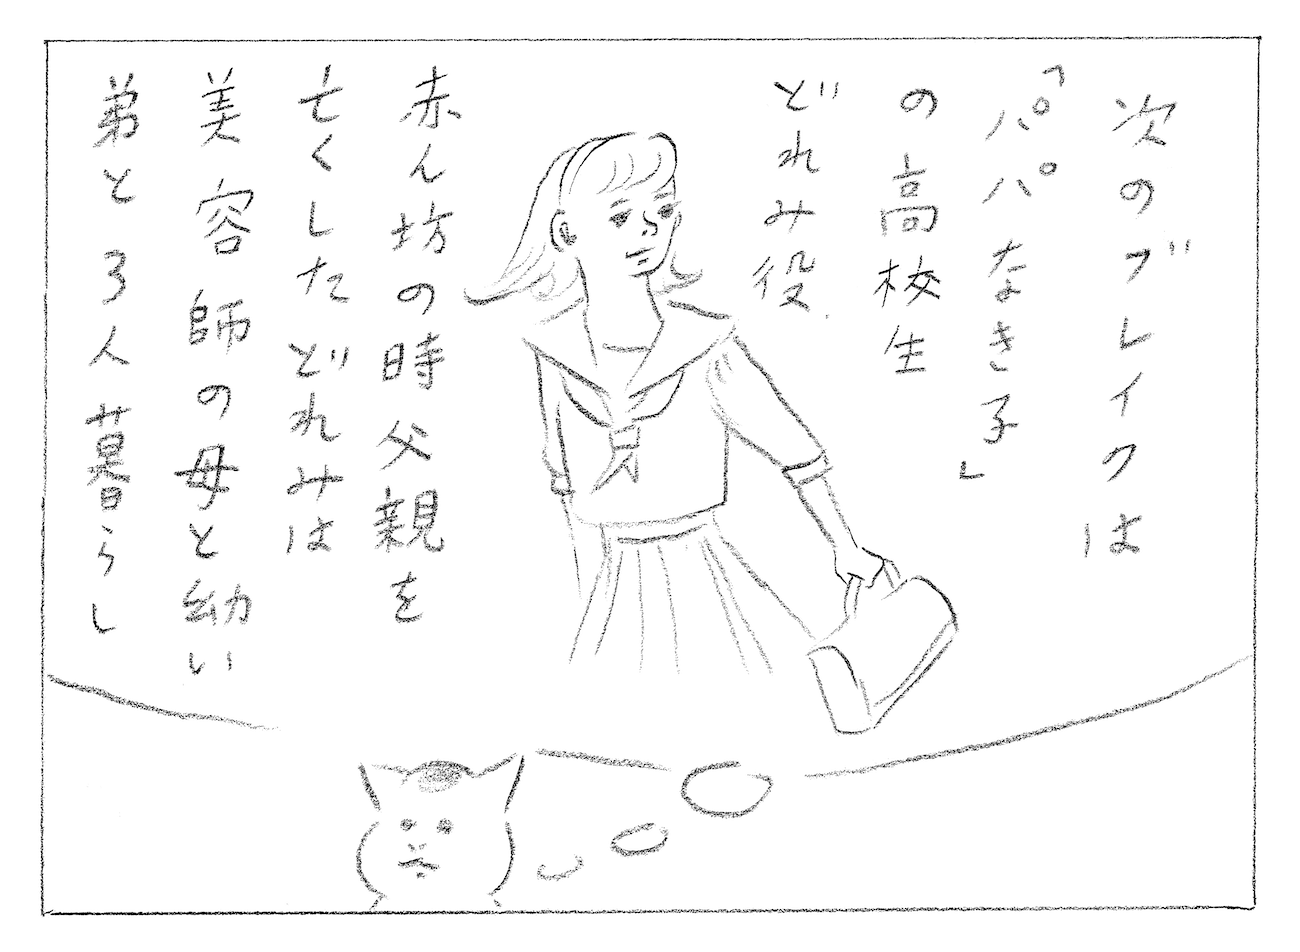 次のブレイクは
「パパなき子」
の高校生
どれみ役.
赤ん坊の時父親を
亡くしたどれみは
美容師の母と幼い
弟と3人暮らし